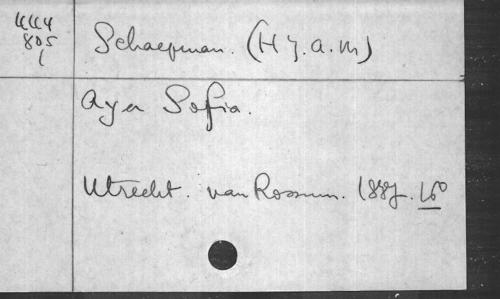 444
805
1
Schaepman. (H J. A. M)
Aya Sofia.
Utrecht. van Rossum. 1887. 16º